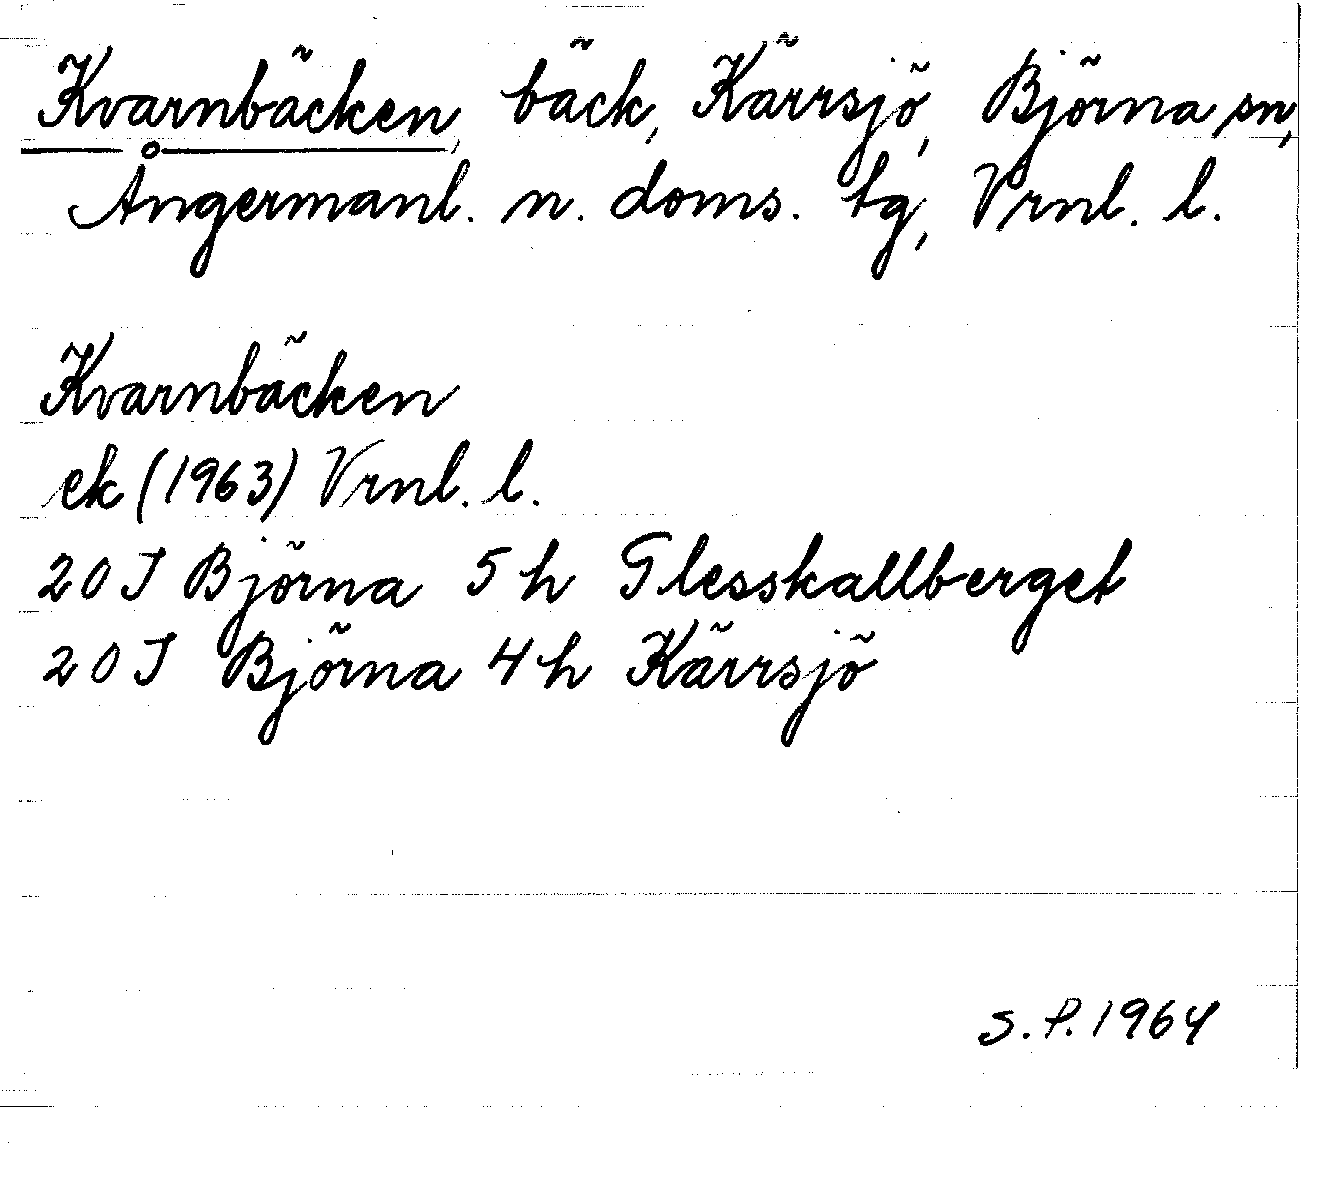 Kvarnbäcken, bäck, Kärrsjö, Björna sn,
Ångermanl. n. doms. tg, Vrnl. l.
Kvarnbäcken
ek (1963) Vrnl. l.
20 J Björna 5 h Glesskallberget
20 J Björna 4 h Kärrsjö
S. P. 1964